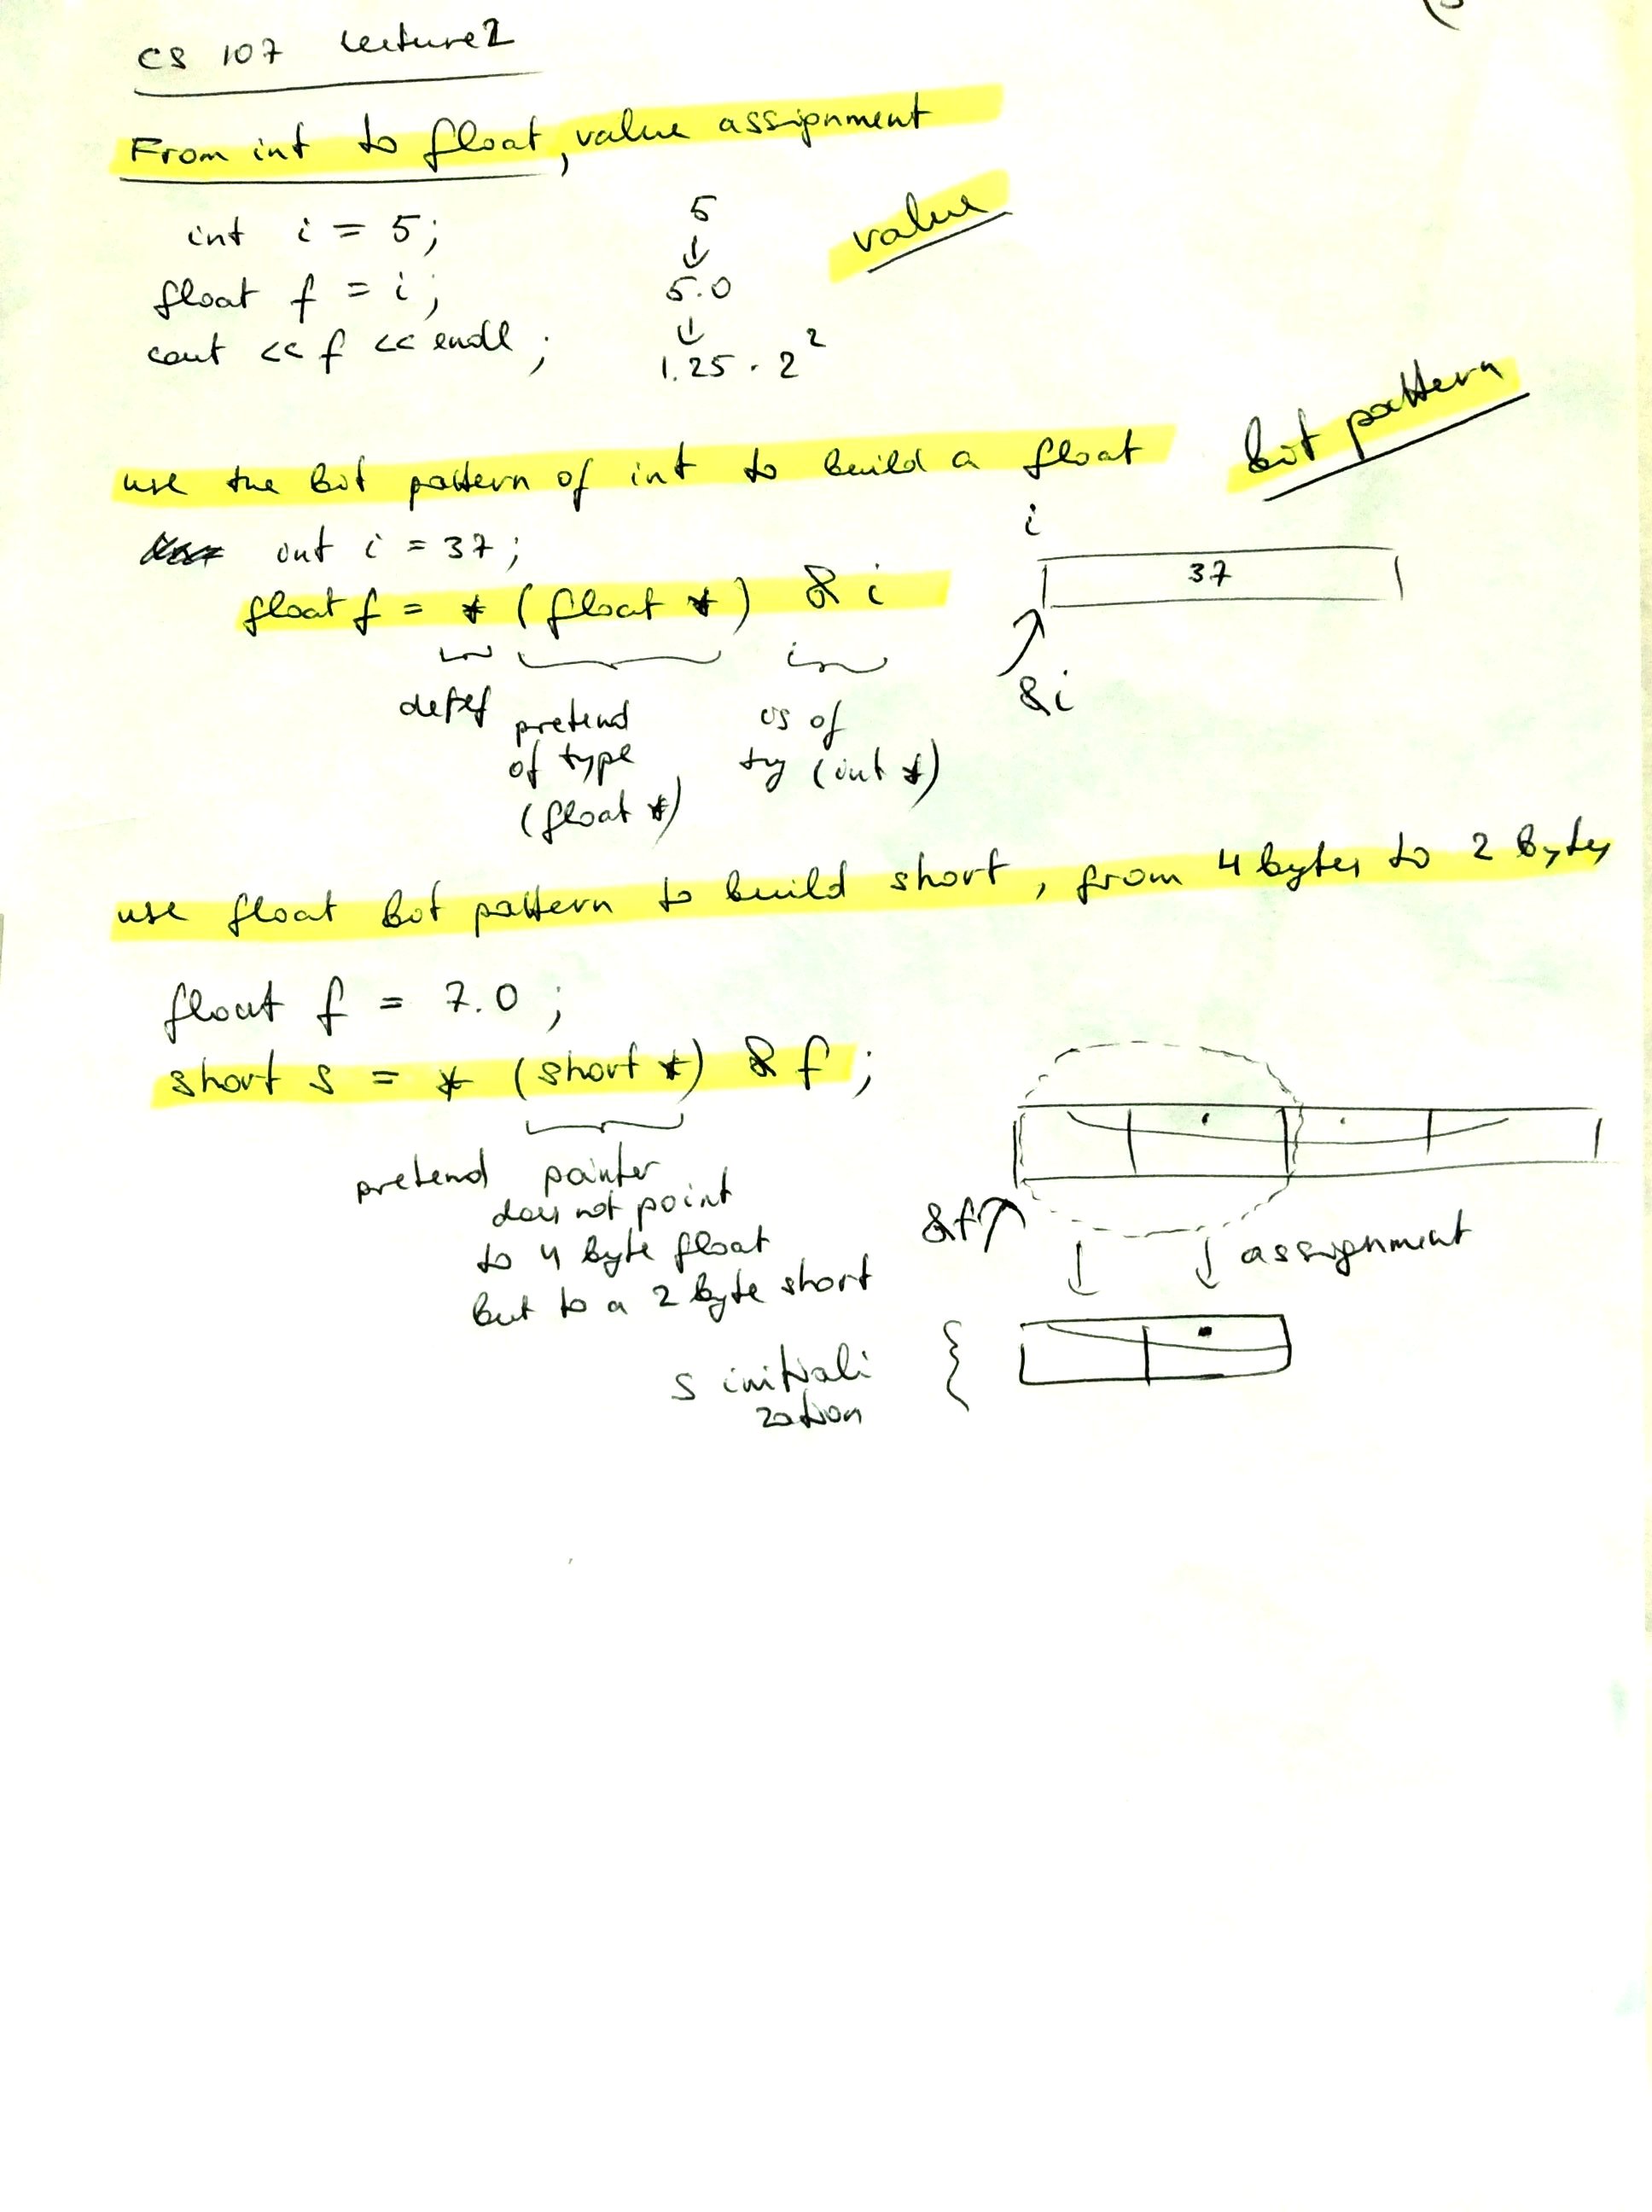 CS 107 lecture 2
From int to float, value assignment
value
int i = 5;
float f = i;
cout << f << endl;
5
5.0
1.25 · 2²
use the bit pattern of int to build a float
bit pattern
int i = 37;
float f = * (float *) & i
i
37
&i
deref
pretend
of type
(float *)
is of
ty (int *)
use float bit pattern to build short, from 4 bytes to 2 bytes
float f = 7.0;
short s = * (short *) & f;
pretend pointer
does not point
to 4 byte float
but to a 2 byte short
&f
assignment
s initiali
zation